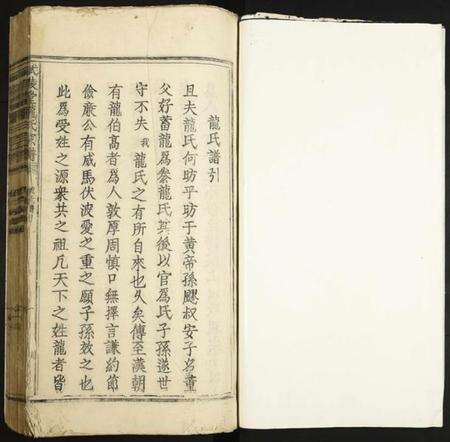 龍氏譜引
且夫龍氏何昉乎昉于黄帝孫颸叔安子名董
父好蓄龍爲豢龍氏其後以官爲氏子孫遂世
守不失我龍氏之有所自來也久矣傳至漢朝
有龍伯高者爲人敦厚周慎口無擇言謙約節
儉廉公有威馬伏波愛之重之願子孫效之也
此爲受姓之源衆共之祖凡天下之姓龍者皆
武陵
龍氏宗譜